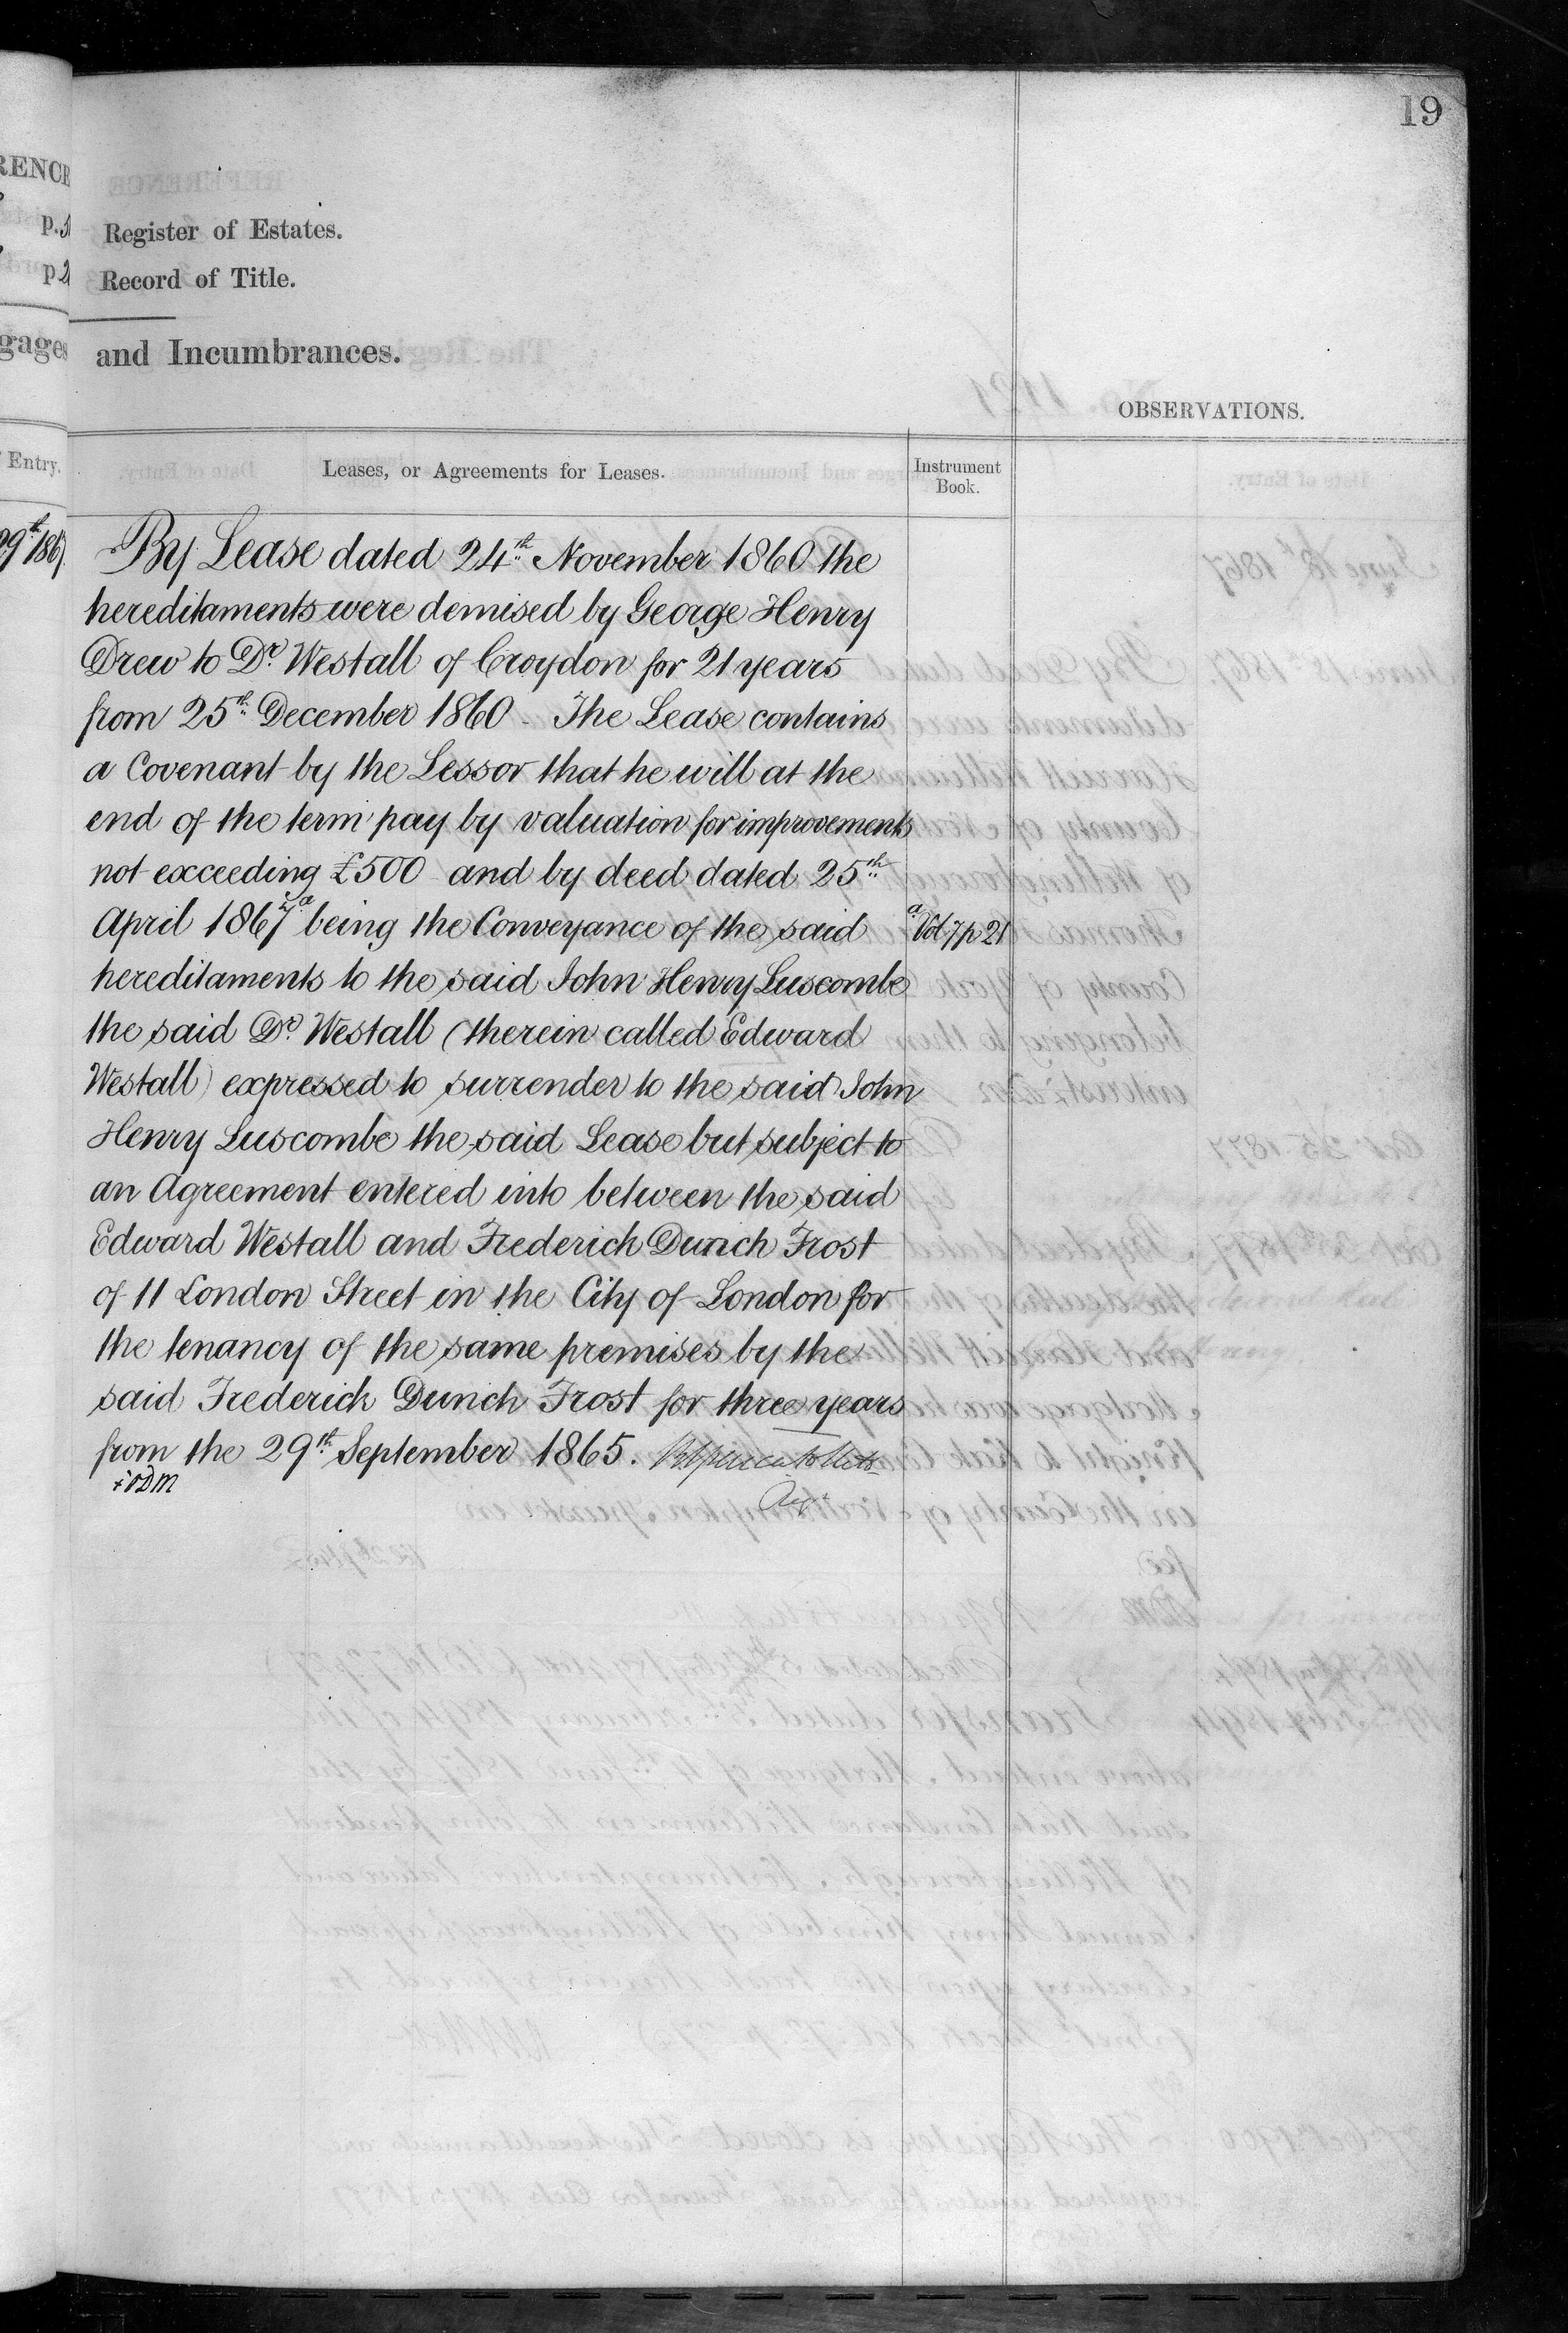 19
RENCE
p. 1
Register of Estates.
p 2
Record of Title.
gages
and Incumbrances.
OBSERVATIONS.
Entry.
Leases, or Agreements for Leases.
Instrument
Book.
29th 1867.
By Lease dated 24th November 1860 the
hereditaments were demised by George Henry
Drew to Dr. Westall of Croydon for 21 years
from 25th December 1860 - The Lease contains
a Covenant by the Lessor that he will at the
end of the term pay by valuation for improvements
not exceeding £500 and by deed dated 25th
April 1867 a being the Conveyance of the said
a Vol 7 p 21
hereditaments to the said John Henry Luscombe
the said Dr. Westall (therein called Edward
Westall) expressed to surrender to the said John
Henry Luscombe the said Lease but subject to
an Agreement entered into between the said
Edward Westall and Frederick Durich Frost
of 11 London Street in the City of London for
the tenancy of the same premises by the
said Frederick Durich Frost for three years
from the 29th September 1865.